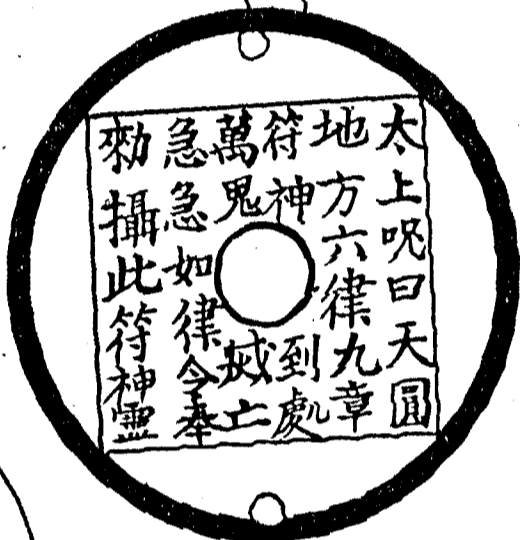 太上咒曰天圓
地方六律九章
符神到處
萬鬼滅亡
急急如律令奉
勑攝此符神靈